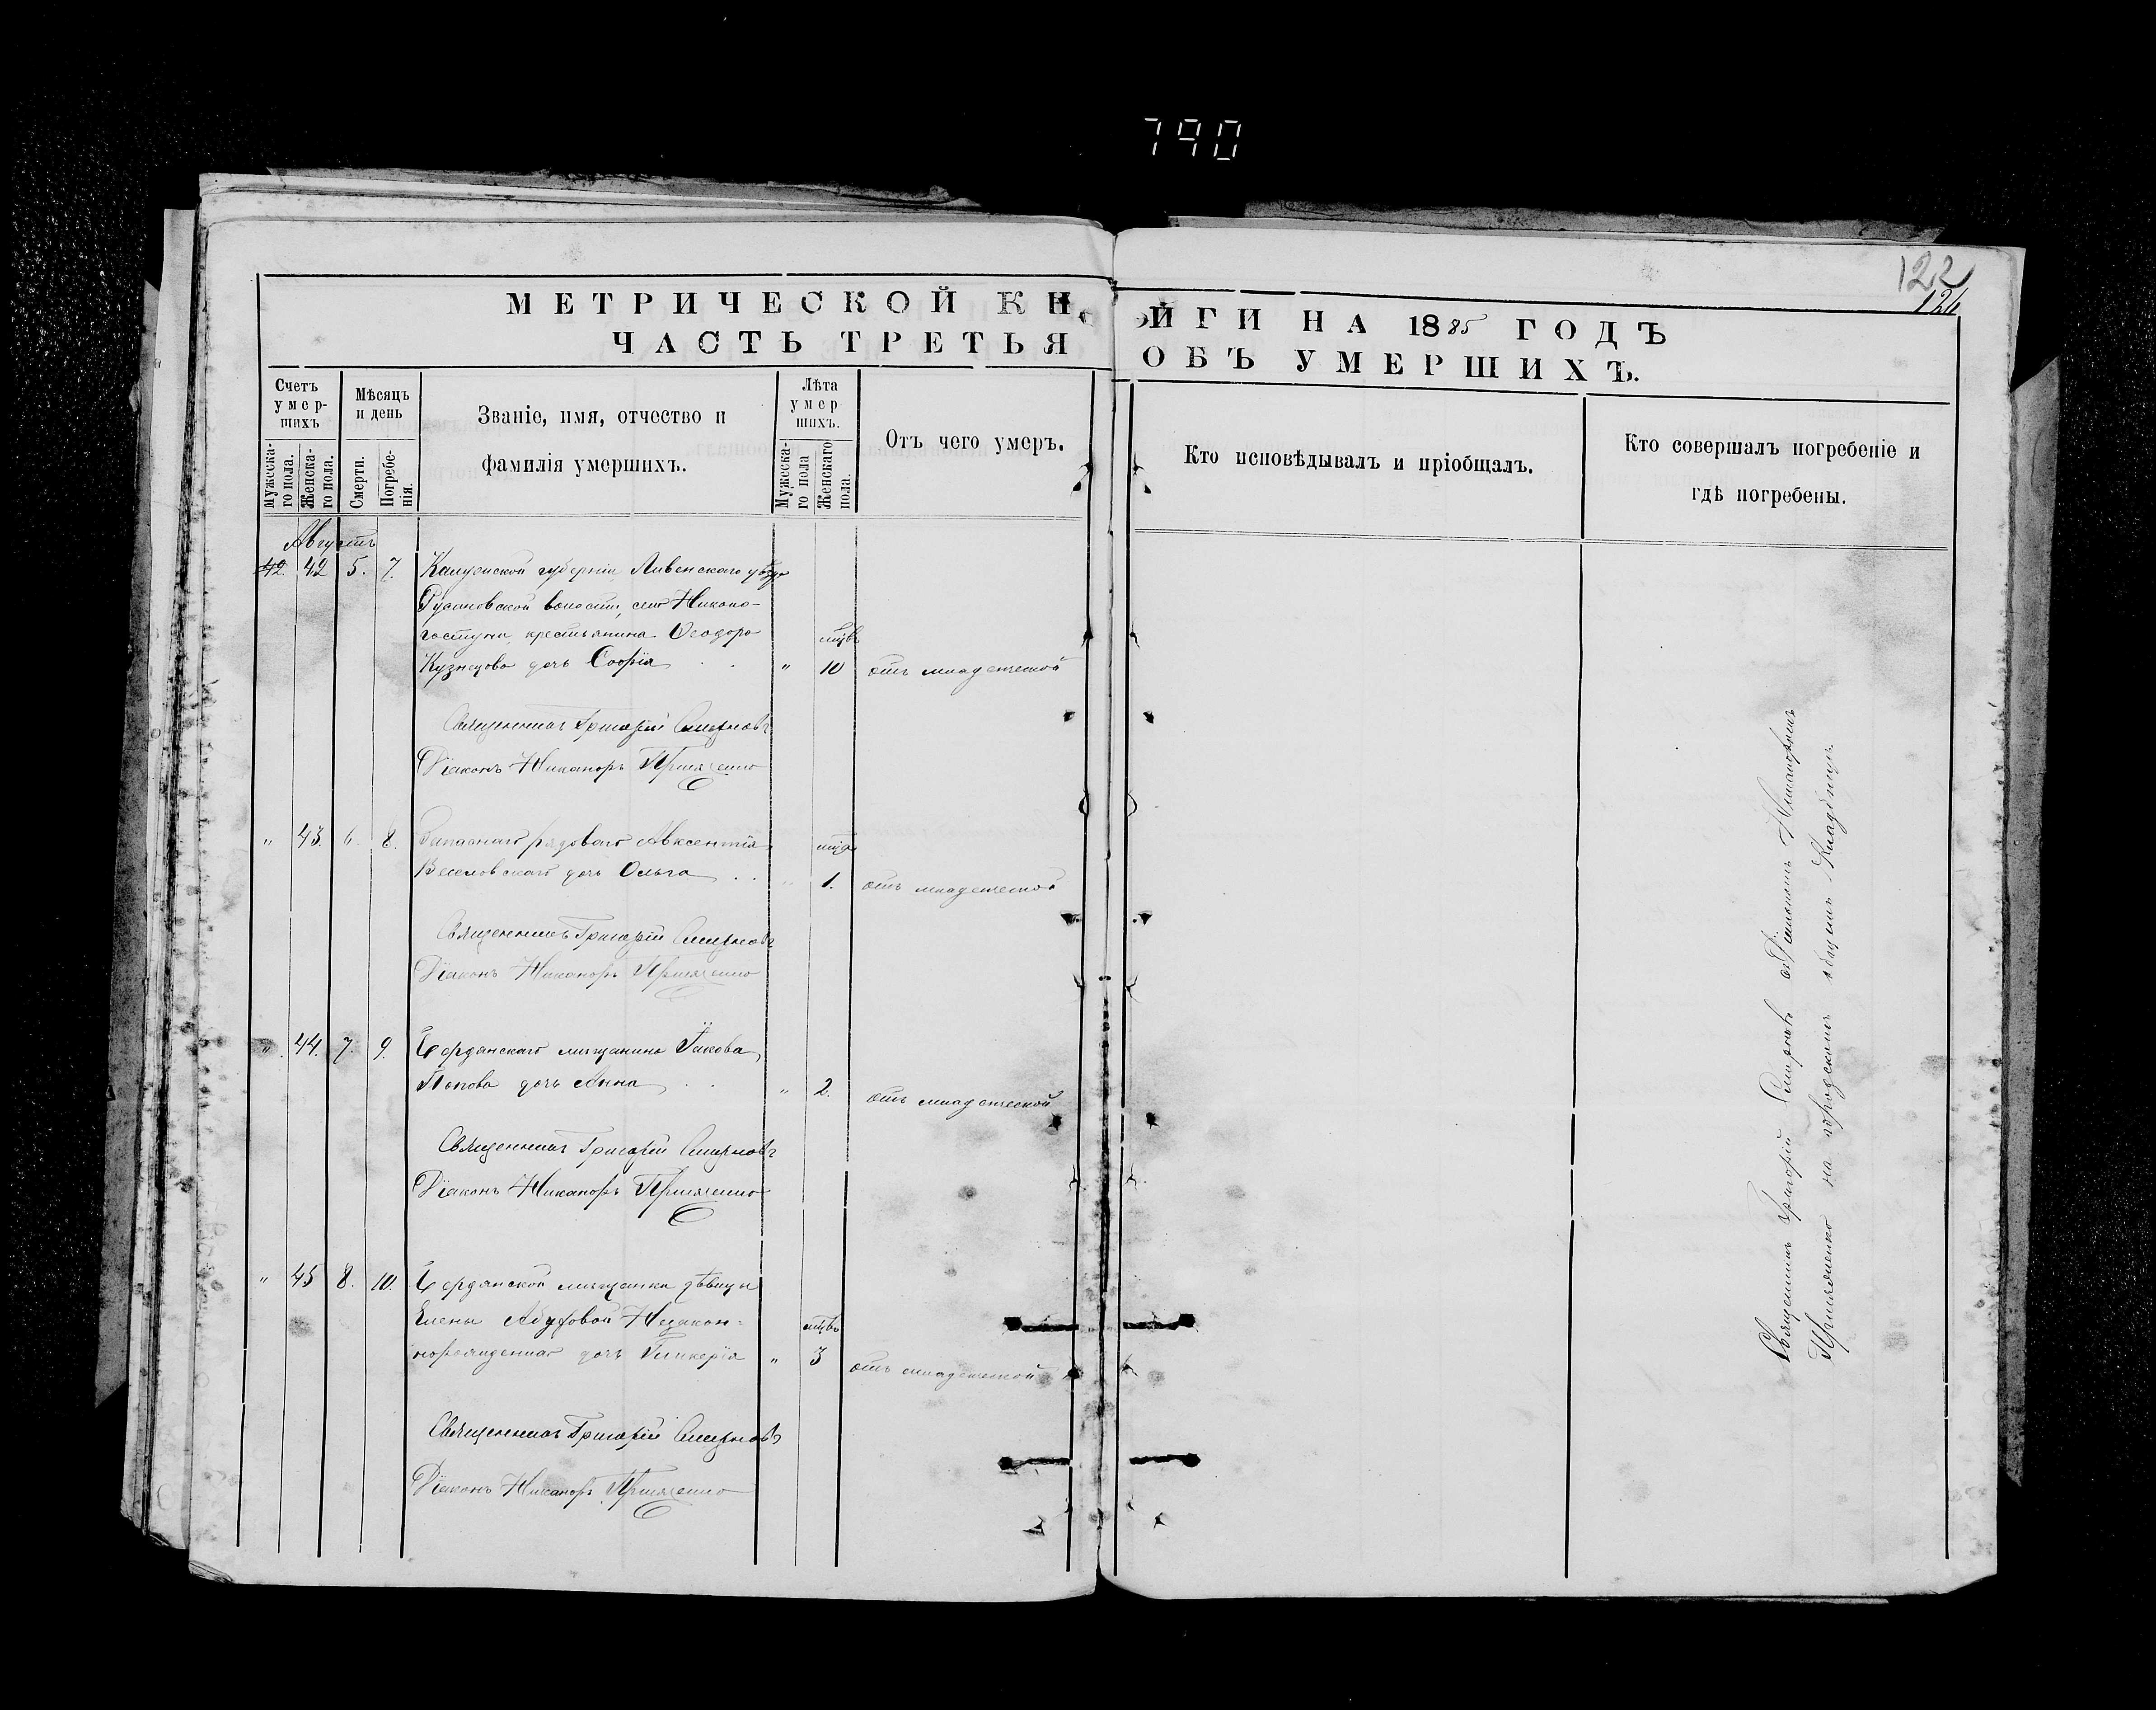 790
122
124
МЕТРИЧЕСКОЙ КНИГИ НА 1885 ГОДЪ
ЧАСТЬ ТРЕТЬЯ ОБЪ УМЕРШИХЪ.
Счетъ умер-шихъ
Мужеска-го пола.
Женска-го пола.
Мѣсяцъ и день
Смерти.
Погребе-нія.
Званіе, имя, отчество и
фамилія умершихъ.
Лѣта умер шихъ.
Мужеска-го пола
Женскаго пола.
Отъ чего умеръ.
Кто исповѣдывалъ и пріобщалъ.
Кто совершалъ погребеніе и
гдѣ погребены.
Августъ
42 42 5. 7. губерніи Ливенскаго уѣзда
волости, села
крестьянина Ѳеодора мцвъ
Кузнецова дочь Софія " 10 отъ младенческой
Священникъ Григорій Смирновъ
Діаконъ Никаноръ
" 43. 6. 8. Запаснаго рядоваго Авксентія
Веселовскаго дочь Ольга " 1. отъ младенческой
Священникъ Григорій Смирновъ
Діаконъ Никаноръ
" 44. 7. 9. Бердянскаго мѣщанина Іакова
Попова дочь Анна " 2. отъ младенческой
Священникъ Григорій Смирновъ
Діаконъ Никаноръ
" 45 8. 10. Бердянской мѣщанки дѣвицы
Елены Незакон-
норожденная дочь Гликерія " 3 мцвъ отъ младенческой
Священникъ Григорій Смирновъ
Діаконъ Никаноръ
Священникъ Григорій Смирновъ съ Діакономъ Никаноромъ
на городскомъ общемъ Кладбищѣ